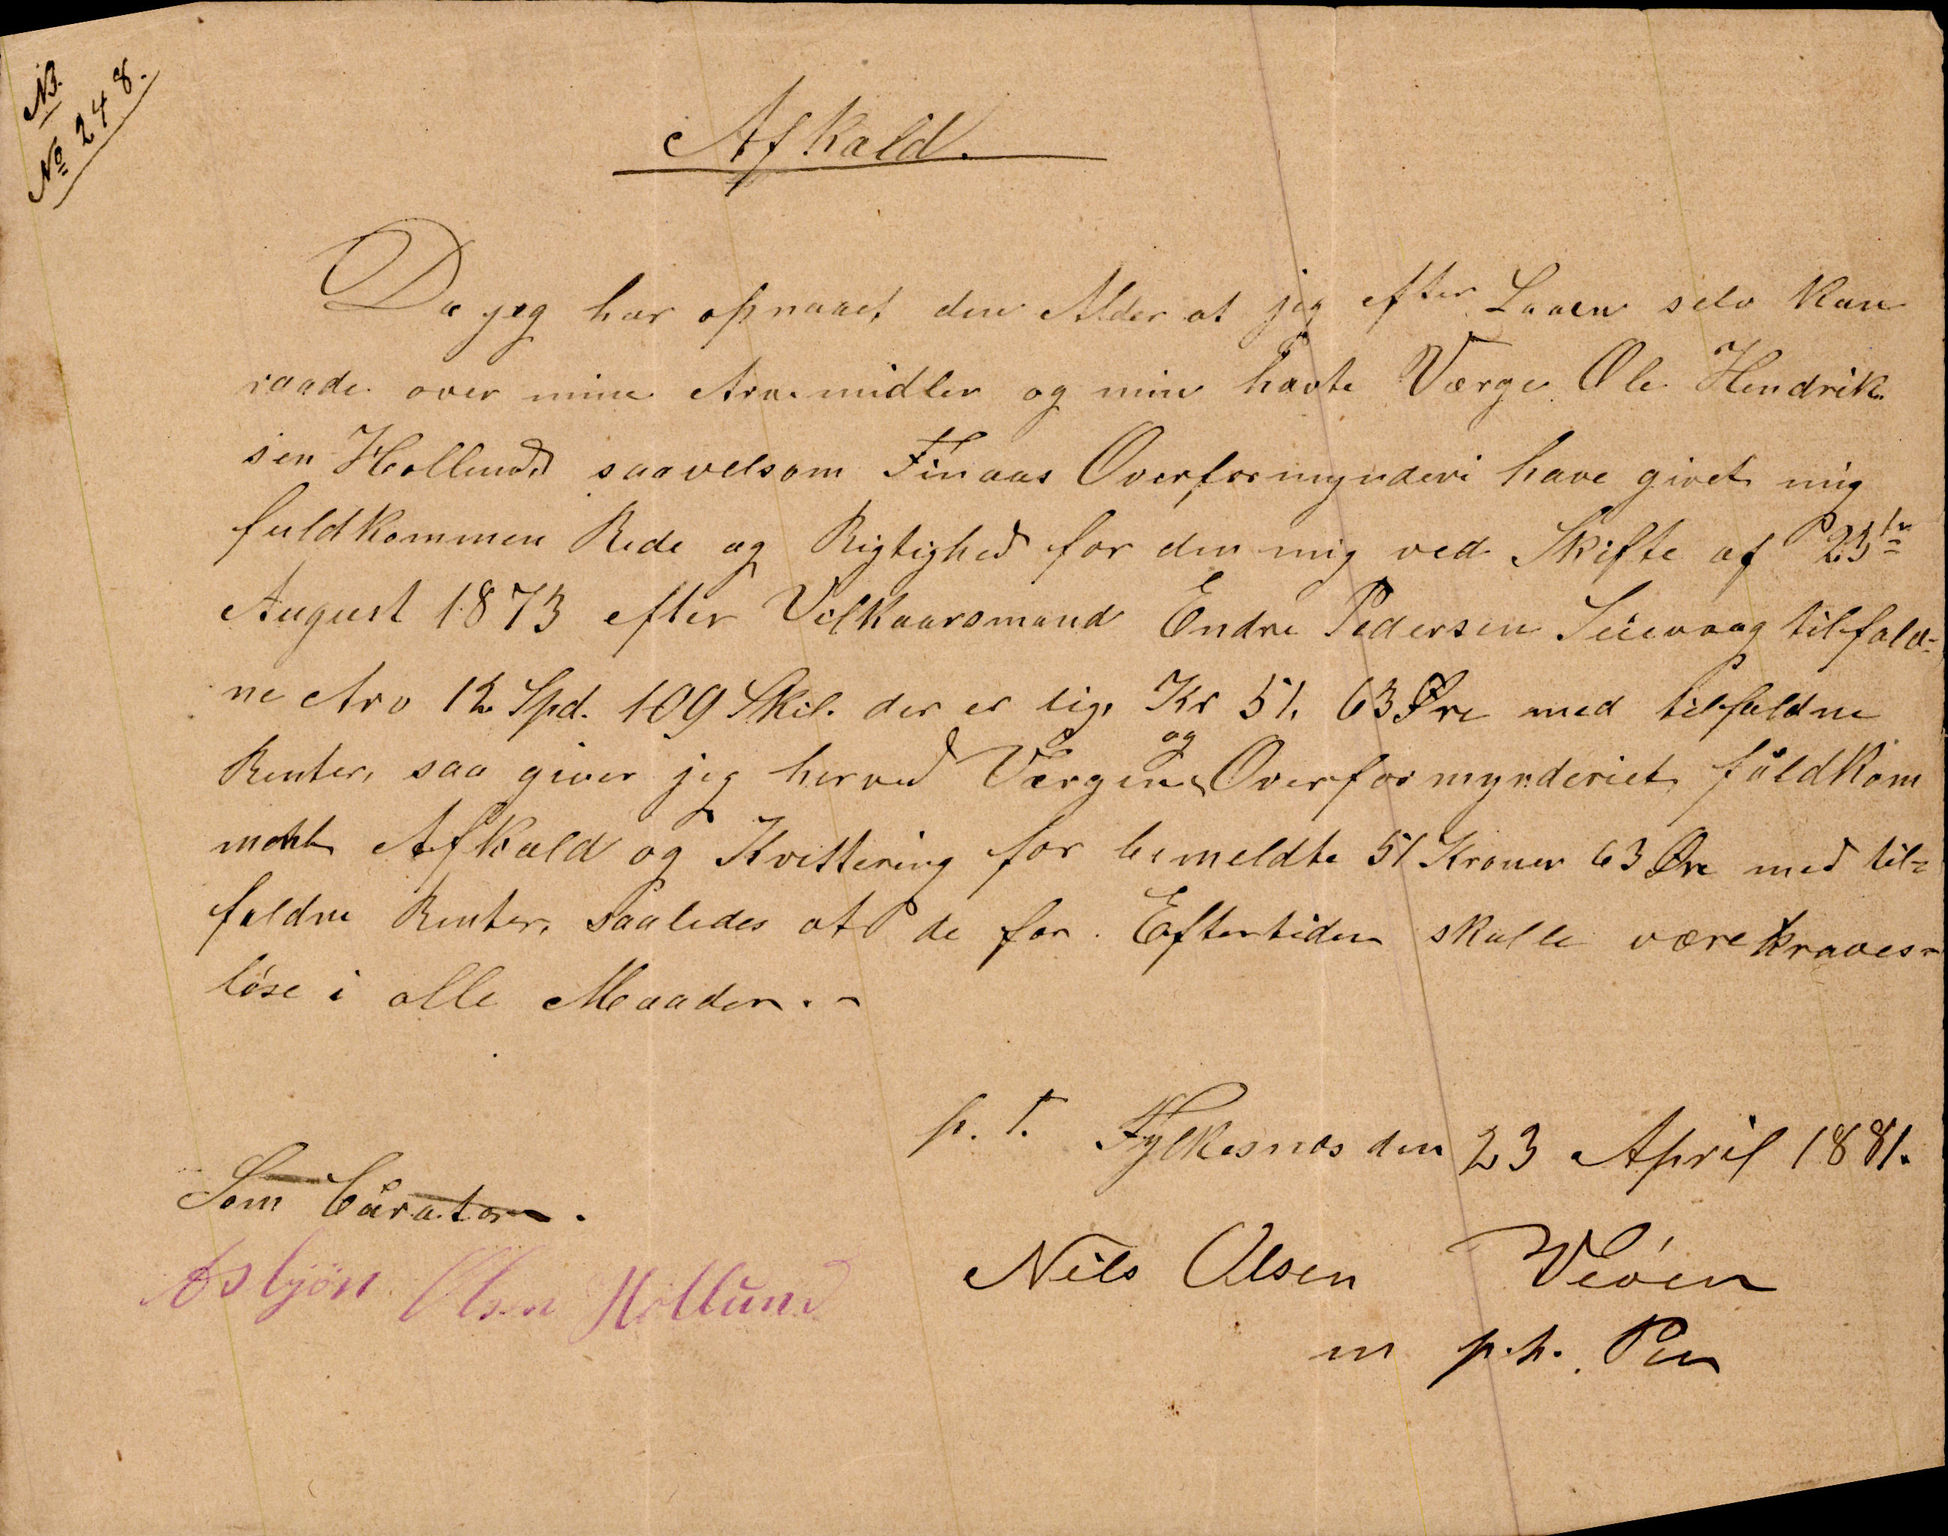 NB.
No 248.
Afkald.
Da jeg har opnaaet den Alder at jeg efter Loven selv kan
raade over mine Arvemidler og min havte Værge Ole Hendrik
sen Hollund saavelsom Finaas Overformynderi have givet mig
fuldkommen Rede og Rigtighed for den mig ved Skifte af 25de
August 1873 efter Vilkaarsmand Endre Pedersen Seievaag tilfald-
ne Arv 12 Spd. 109 Skil. der er lig, Kr 51, 63 Øre med tilfaldne
Renter, saa giver jeg herved Værgen og Overformynderiet fuldkom
ment Afkald og Kvittering for bemeldte 51 Kroner 63 Øre med til=
faldne Renter, saaledes at de for Eftertiden skulle være kraves-
løse i alle Maader.-
p. T. Fylkesnes den 23 April 1881.
Som Curator.
Asbjön Olsen Hollund
Nils Olsen Veöen
m p.h. Pen